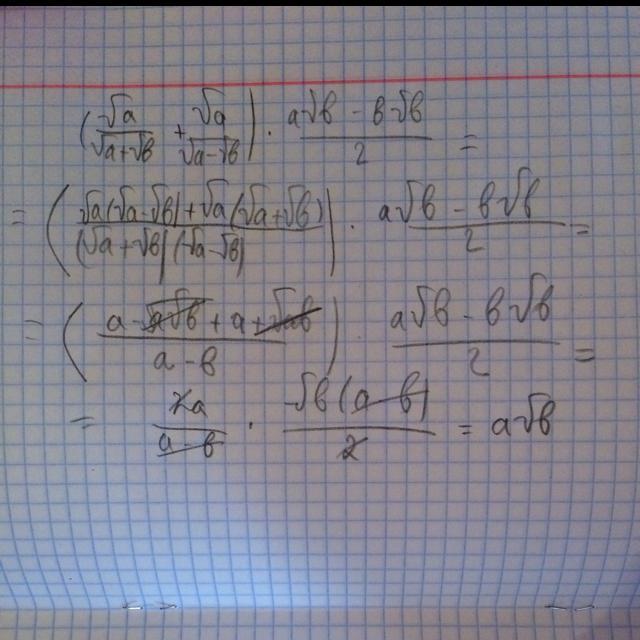 (√a/(√a+√b) + √a/(√a-√b)) · (a√b - b√b)/2 =
= ((√a(√a-√b)+√a(√a+√b))/((√a+√b)(√a-√b))) · (a√b - b√b)/2 =
= ((a-√a√b+a+√ab)/(a-b)) · (a√b - b√b)/2 =
= 2a/(a-b) · √b(a-b)/2 = a√b